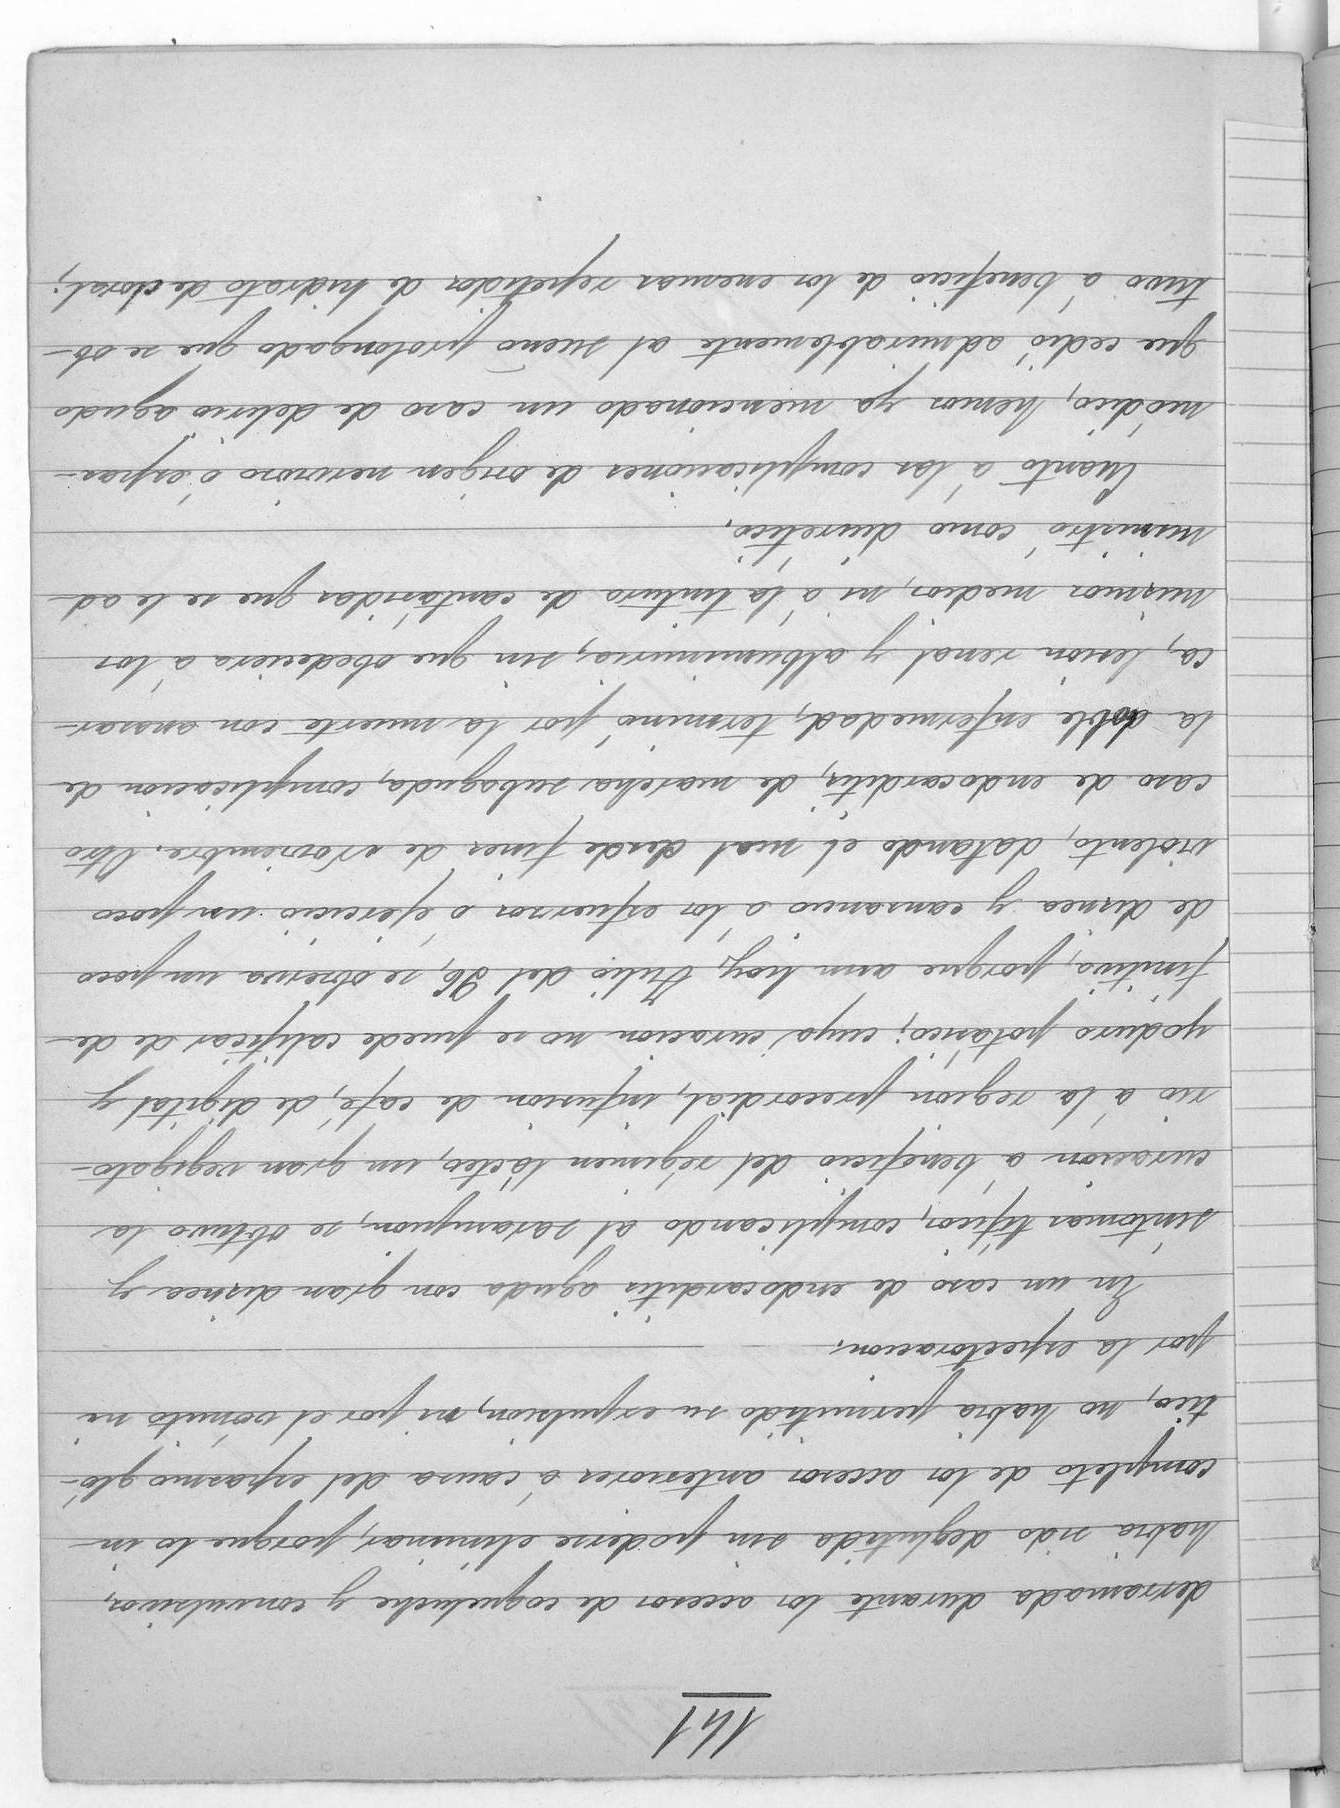 141
derramada durante los accesos de coqueluche y convulsivos,
habia sido deglutida sin poderse eliminar, porque lo in-
completo de los accesos anteriores á causa del espasmo gló-
tico, no habia permitido su expulsion, ni por el vómito ni
por la espectoracion.
En un caso de endocarditis aguda con gran disnea y
síntomas tíficos, complicando al sarampion, se obtuvo la
curacion á beneficio del régimen lácteo, un gran vegigato-
rio á la region precordial, infusion de café, de digital y
yoduro potásico; cuya curacion no se puede calificar de de-
finitiva, porque aun hoy, Julio del 96, se observa un poco
de disnea y cansancio á los esfuerzos ó ejercicio un poco
violento, datando el mal desde fines de Noviembre. Otro
caso de endocarditis, de marcha subaguda, complicacion de
la doble enfermedad, terminó por la muerte con anasar-
ca, lesion renal y albuminuria, sin que obedeciera á los
mismos medios, ni á la tintura de cantáridas que se le ad-
ministró como diurético.
Cuanto á las complicaciones de orígen nervioso ó espas-
módico, hemos ya mencionado un caso de delirio agudo
que cedió admirablemente al sueño prolongado que se ob-
tuvo á beneficio de los enemas repetidos de hidrato de cloral;